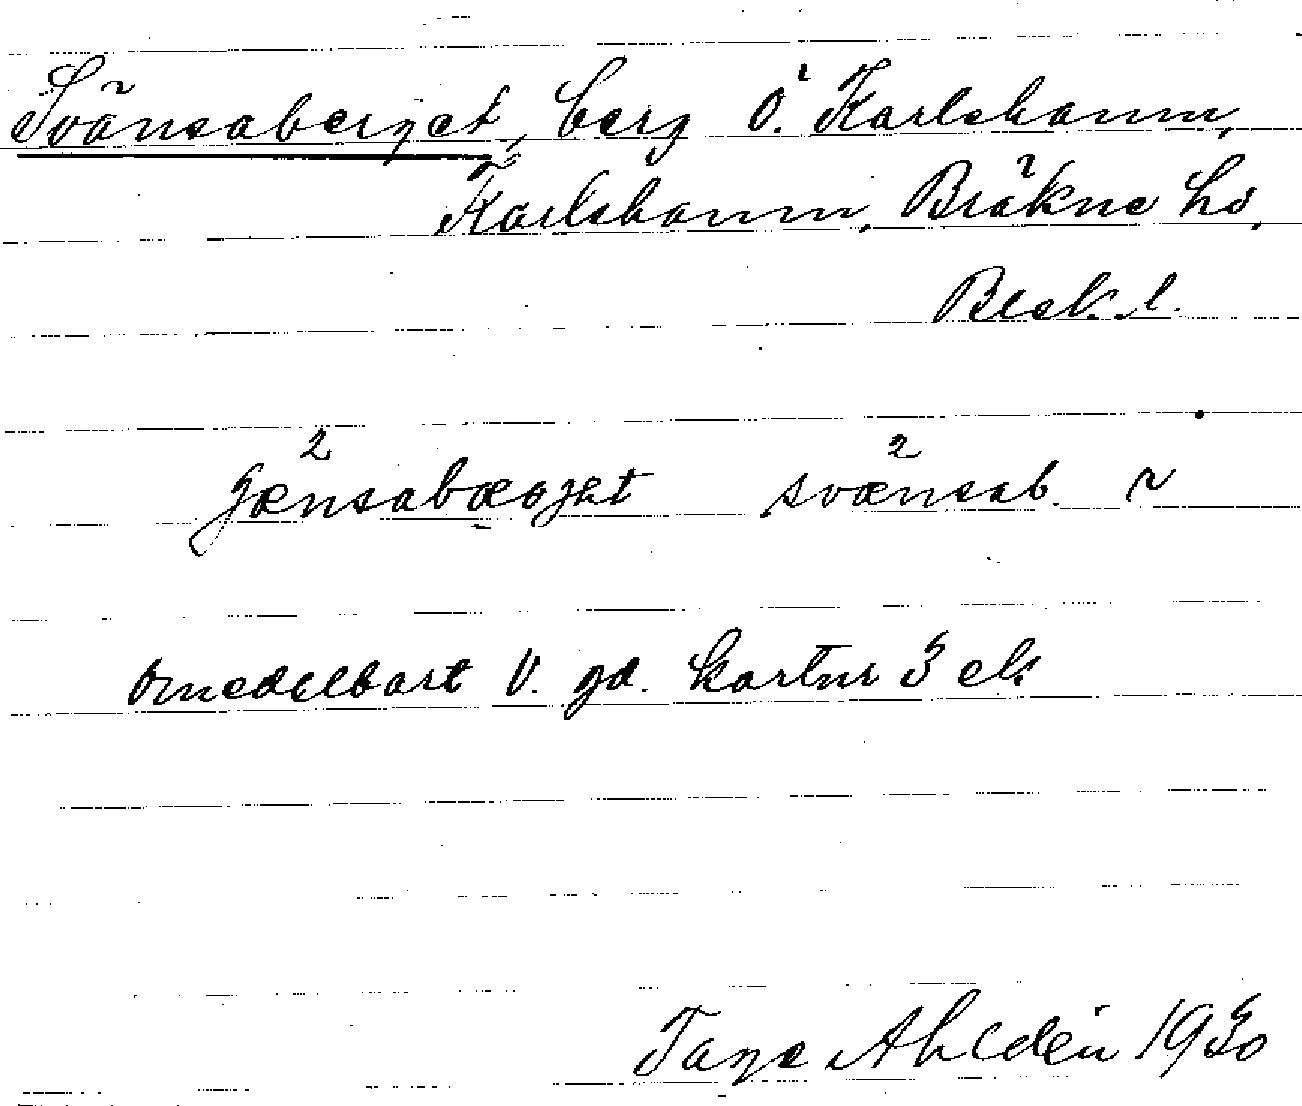 Svänsaberget, berg Ö. Karlshamn,
Karlshamn, Bräkne hd,
Blek. l.
2 2
jænsabærget svænsab. ~
omedelbart V. gd. kartnr 3 ek
Tage Ahldén 1930